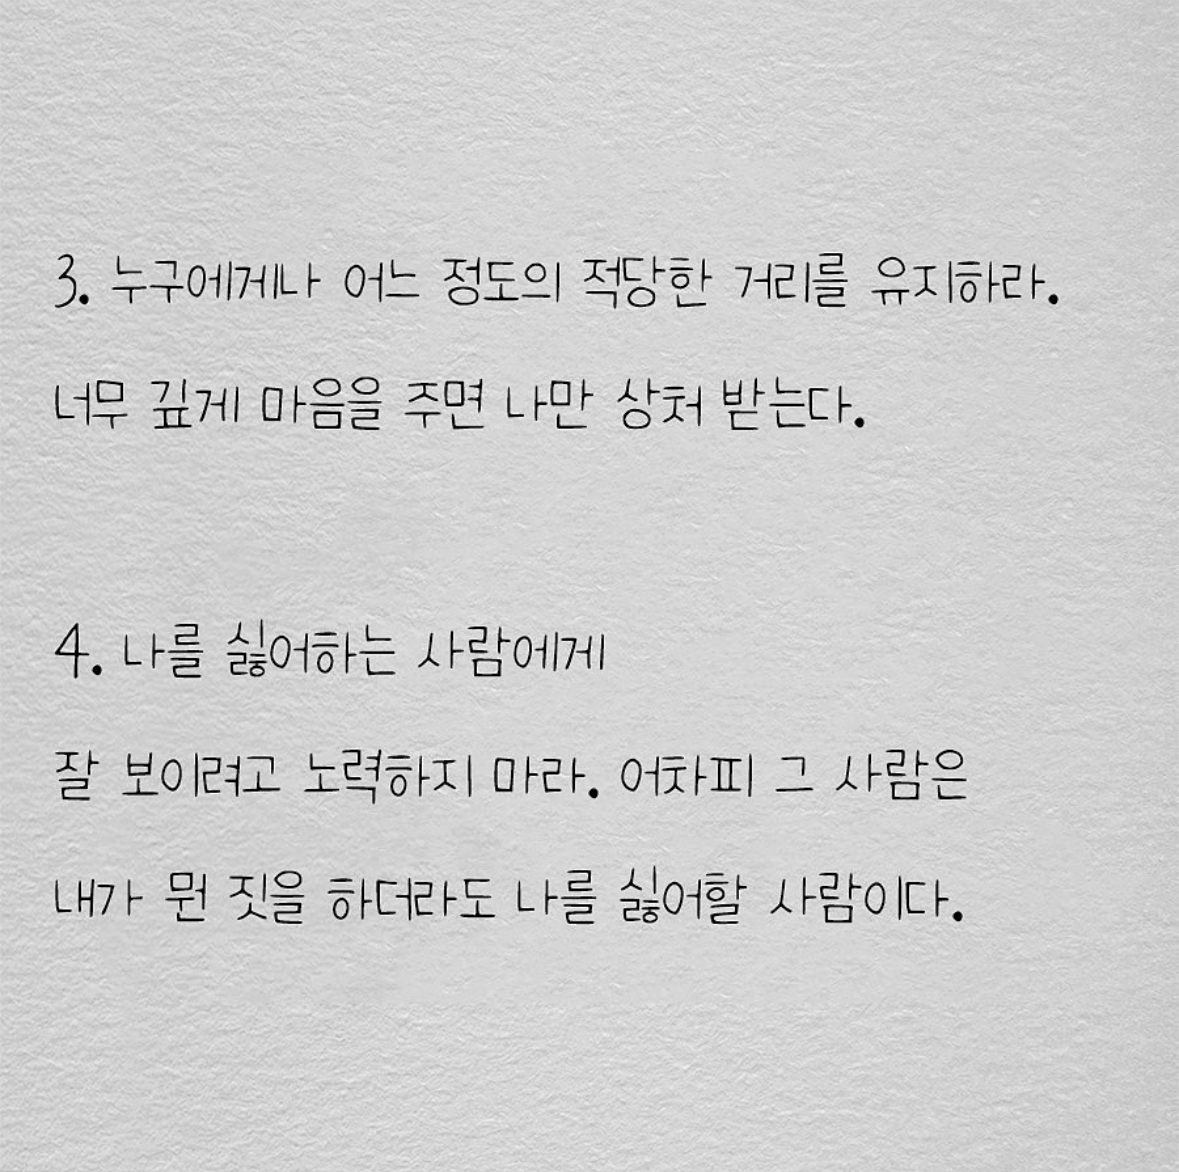 3. 누구에게나 어느 정도의 적당한 거리를 유지하라.
너무 깊게 마음을 주면 나만 상처 받는다.
4. 나를 싫어하는 사람에게
잘 보이려고 노력하지 마라. 어차피 그 사람은
내가 뭔 짓을 하더라도 나를 싫어할 사람이다.